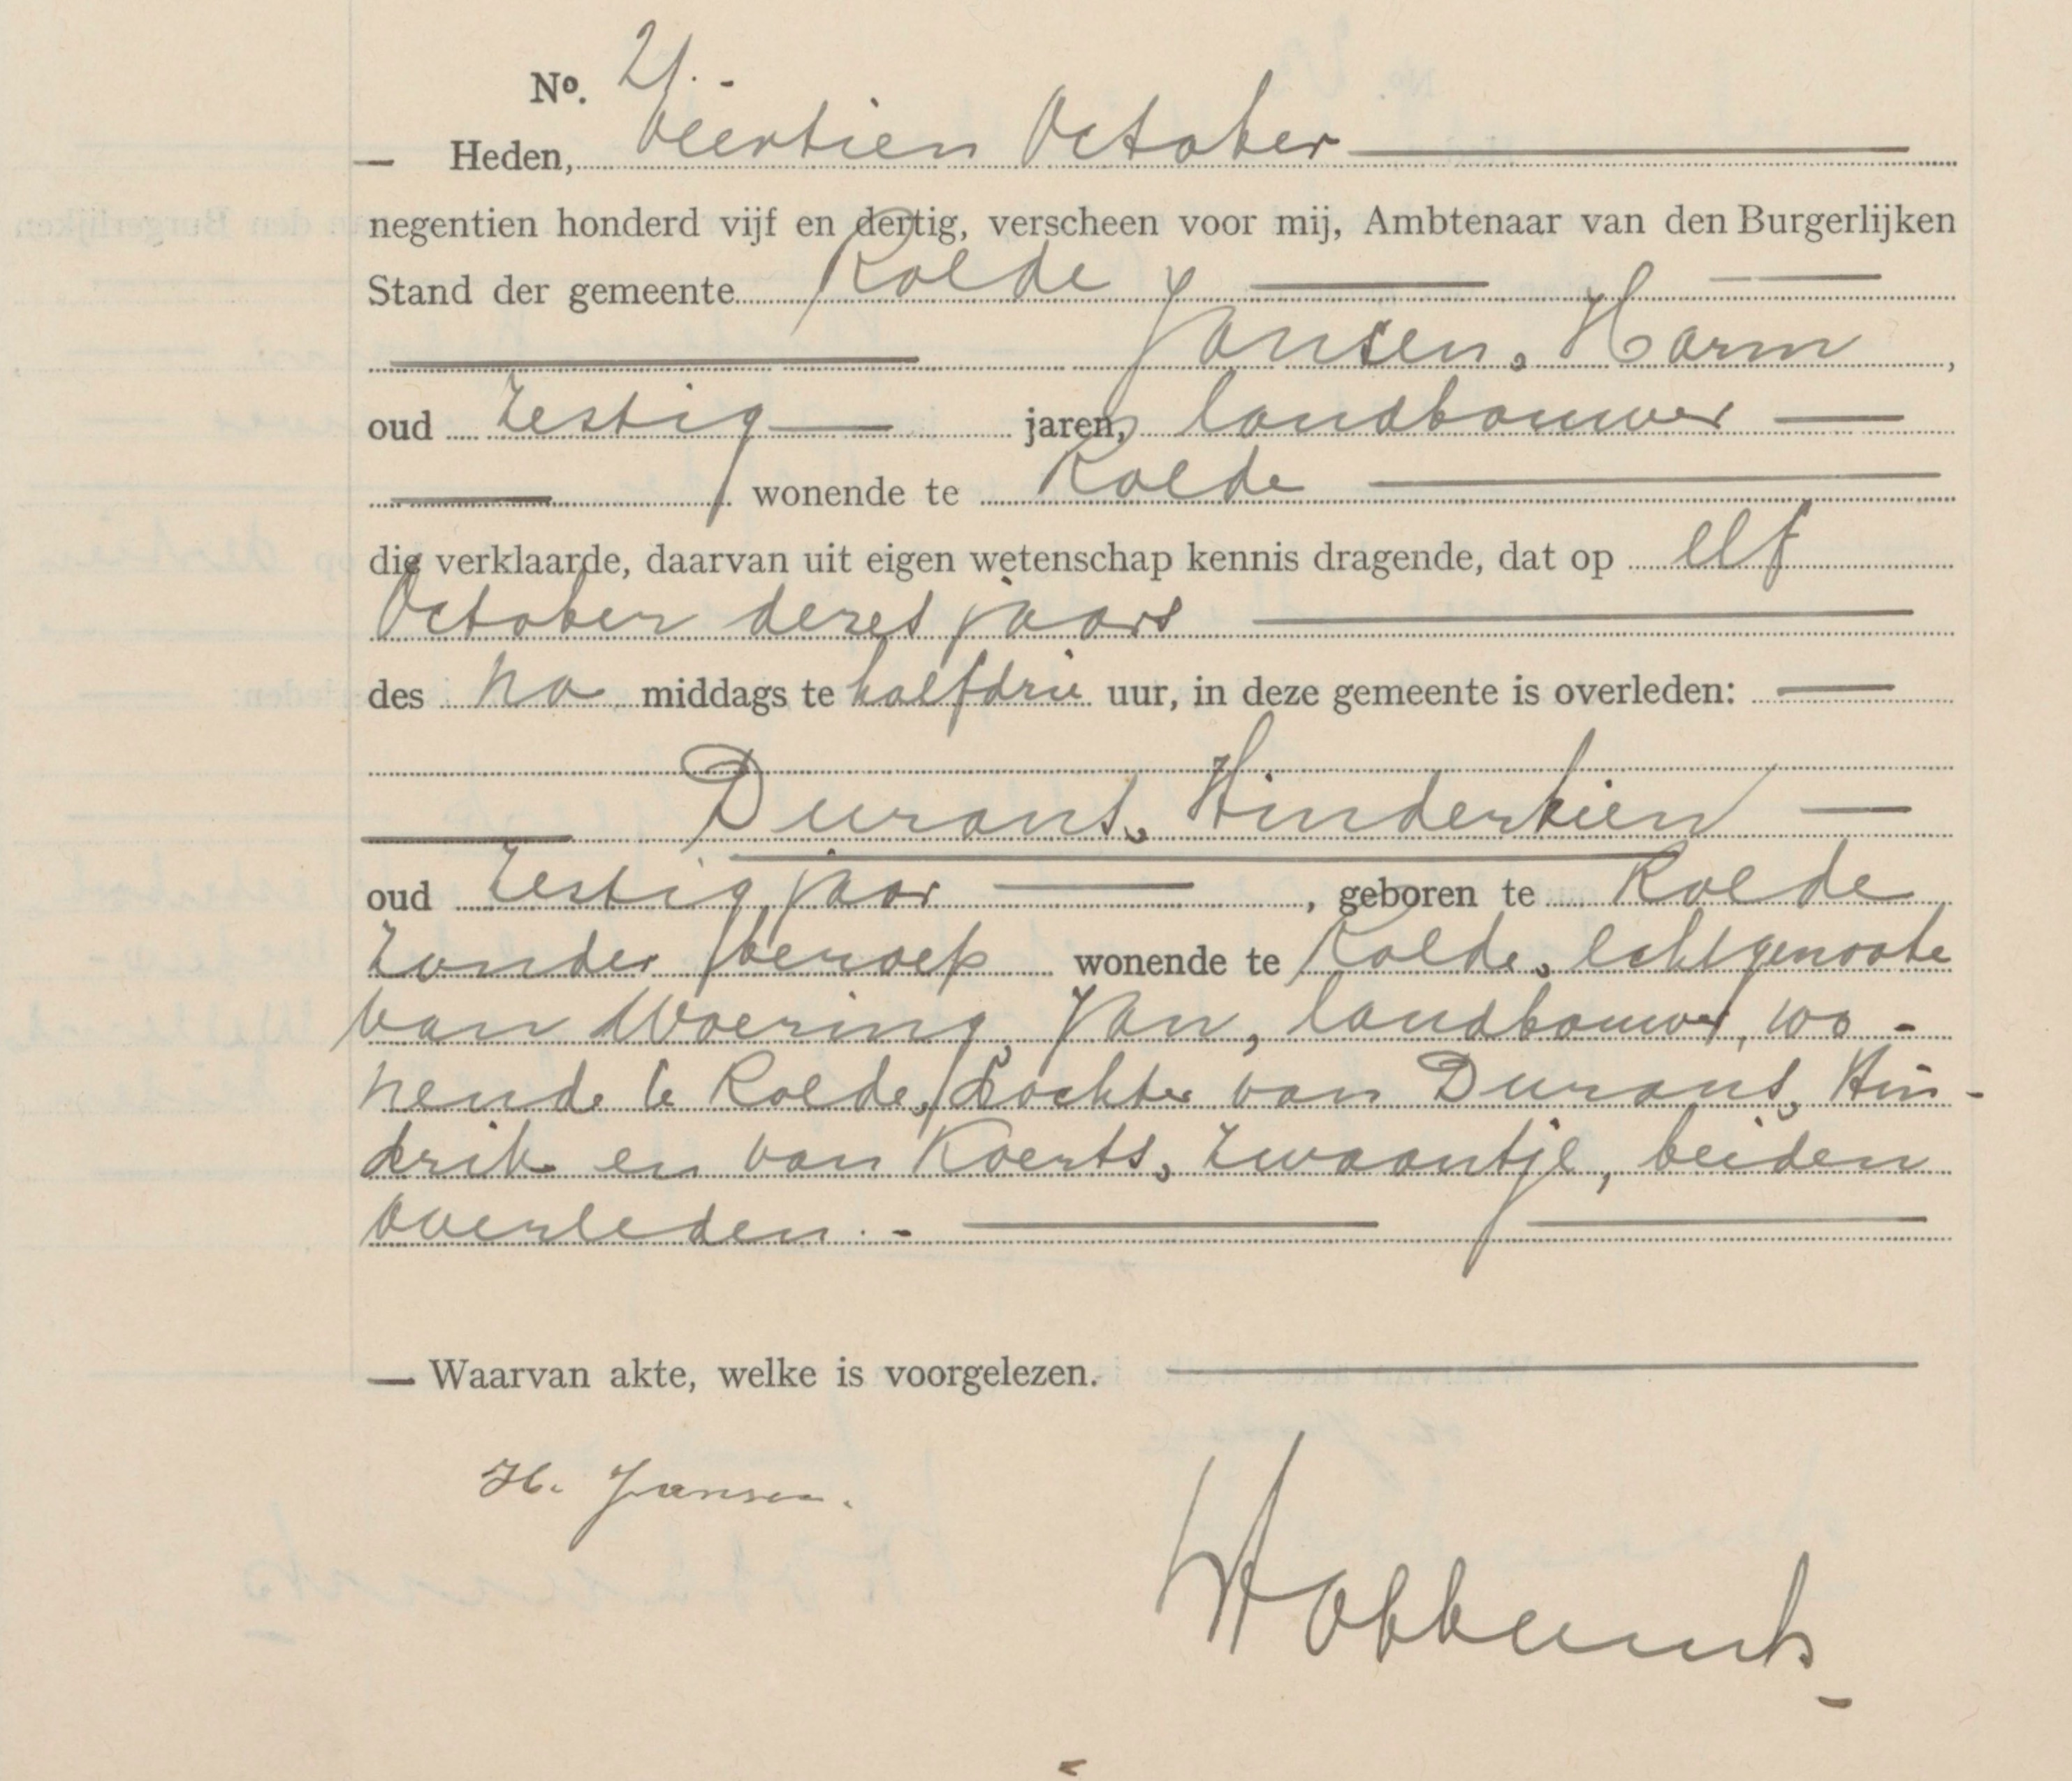 No. 21.-
— Heden, Veertien October
negentien honderd vijf en dertig, verscheen voor mij, Ambtenaar van den Burgerlijken
Stand der gemeente Rolde
Jansen, Harm,
oud Zestig jaren, landbouwer
wonende te Rolde
die verklaarde, daarvan uit eigen wetenschap kennis dragende, dat op elf
October dezes jaars
des na middags te halfdrie uur, in deze gemeente is overleden:
Durans, Hindertien
oud Zestig jaar, geboren te Rolde
zonder beroep wonende te Rolde, echtgenoote
van Woering, Jan, landbouwer, wo-
nende te Rolde, dochter van Durans, Hin-
drik en van Koerts, Zwaantje, beiden
overleden.-
— Waarvan akte, welke is voorgelezen.
H. Jansen.